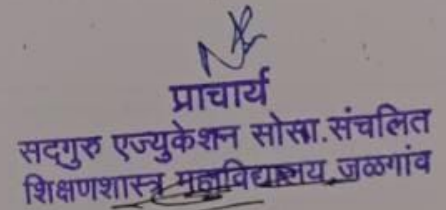 प्राचार्य
सदगुरु एज्युकेशन सोसा.संचलित
शिक्षणशास्त्र महाविद्यालय जळगांव